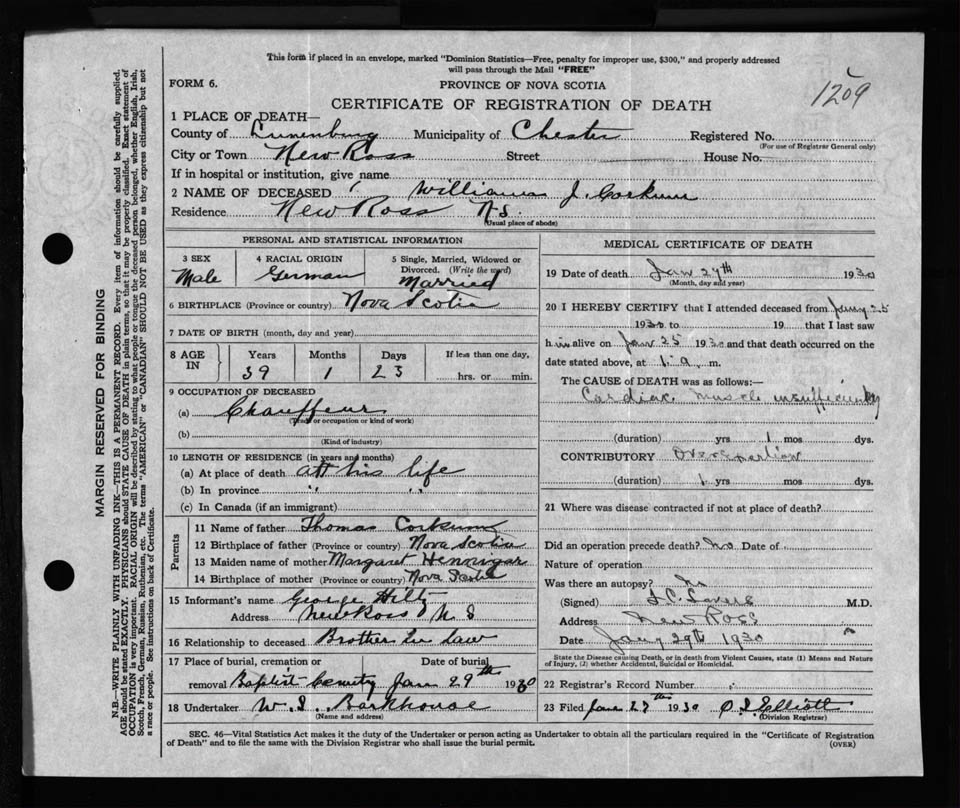 This form if placed in an envelope, marked "Dominion Statistics—Free, penalty for improper use, $300," and properly addressed
will pass through the Mail "FREE"
FORM 6.
PROVINCE OF NOVA SCOTIA
1209
CERTIFICATE OF REGISTRATION OF DEATH
1 PLACE OF DEATH—
County of Lunenburg Municipality of Chester Registered No.
(For use of Registrar General only)
City or Town New Ross Street House No.
If in hospital or institution, give name
2 NAME OF DECEASED William J. Corkum
Residence New Ross N.S.
(Usual place of abode)
PERSONAL AND STATISTICAL INFORMATION
3 SEX 4 RACIAL ORIGIN 5 Single, Married, Widowed or
Divorced. (Write the word)
Male German Married
6 BIRTHPLACE (Province or country) Nova Scotia
7 DATE OF BIRTH (month, day and year)
8 AGE IN Years Months Days If less than one day,
39 1 23 hrs. or min.
9 OCCUPATION OF DECEASED
(a) Chauffeur
(Trade or occupation or kind of work)
(b)
(Kind of industry)
10 LENGTH OF RESIDENCE (in years and months)
(a) At place of death all his life
(b) In province " "
(c) In Canada (if an immigrant)
Parents
11 Name of father Thomas Corkum
12 Birthplace of father (Province or country) Nova Scotia
13 Maiden name of mother Margaret Hennigar
14 Birthplace of mother (Province or country) Nova Scotia
15 Informant's name George Hiltz
Address New Ross N S
16 Relationship to deceased Brother In Law
17 Place of burial, cremation or Date of burial
removal Baptist Jan 29th 1930
18 Undertaker W. S. Barkhouse
(Name and address)
MEDICAL CERTIFICATE OF DEATH
19 Date of death Jan 27th 1930
(Month, day and year)
20 I HEREBY CERTIFY that I attended deceased from Jany 25
1930 to 19 that I last saw
him alive on Jan 25 1930 and that death occurred on the
date stated above, at 1 a m.
The CAUSE OF DEATH was as follows:—
Cardiac muscle insufficiency
(duration) yrs 1 mos dys.
CONTRIBUTORY Overexertion
(duration) 1 yrs mos dys.
21 Where was disease contracted if not at place of death?
Did an operation precede death? no Date of
Nature of operation
Was there an autopsy? no
(Signed) M.D.
Address New Ross
Date Jany 29th 1930
State the Disease causing Death, or in death from Violent Causes, state (1) Means and Nature
of Injury, (2) whether Accidental, Suicidal or Homicidal.
22 Registrar's Record Number
23 Filed Jan 27th 1930 Elliott
(Division Registrar)
SEC. 46—Vital Statistics Act makes it the duty of the Undertaker or person acting as Undertaker to obtain all the particulars required in the "Certificate of Registration
of Death" and to file the same with the Division Registrar who shall issue the burial permit.
(OVER)
MARGIN RESERVED FOR BINDING
N.B.—WRITE PLAINLY WITH UNFADING INK—THIS IS A PERMANENT RECORD. Every item of information should be carefully supplied.
AGE should be stated EXACTLY. PHYSICIANS should STATE CAUSE OF DEATH in plain terms, so that it may be properly classified. Exact statement of
OCCUPATION is very important. RACIAL ORIGIN will be described by stating to what people or tongue the deceased person belonged, whether English, Irish,
Scotch, French, German, Russian, Ruthenian, etc. The terms "AMERICAN" or "CANADIAN" SHOULD NOT BE USED as they express citizenship but not
a race or people. See instructions on back of Certificate.